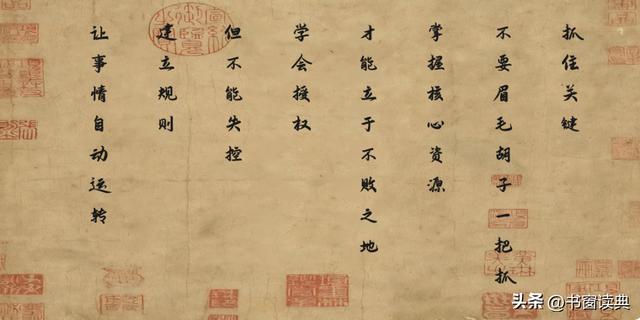 抓住关键
不要眉毛胡子一把抓
掌握核心资源
才能立于不败之地
学会授权
但不能失控
建立规则
让事情自动运转
头条 @书窗读典